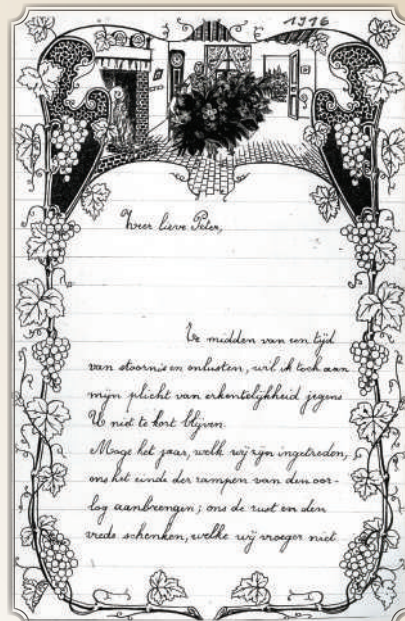 1916
Zeer lieve Peter,
Te midden van een tijd
van stoornis en onlusten, wil ik toch aan
mijn plicht van erkentelijkheid jegens
U niet te kort blijven.
Moge het jaar, welk wij zijn ingetreden,
ons het einde der rampen van den oor-
log aanbrengen; ons de rust en den
vrede schenken, welke wij vroeger niet